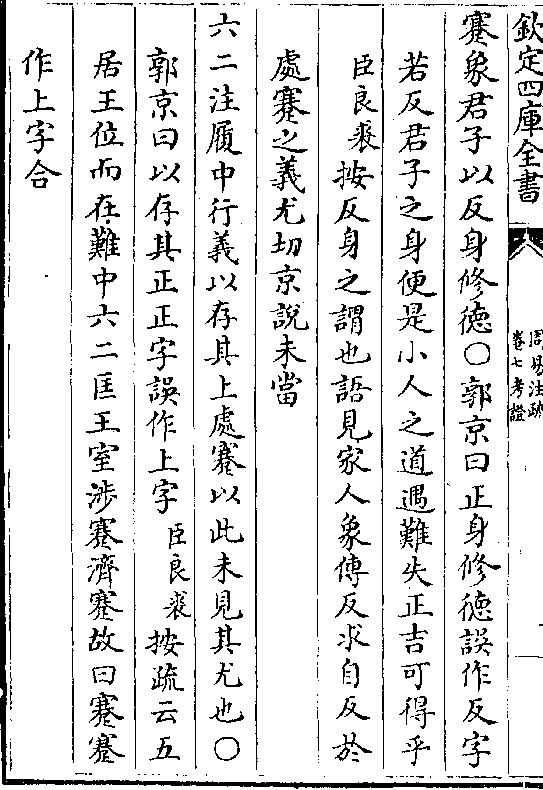 欽定四庫全書
周易注疏
卷七考證
蹇象君子以反身修徳○郭京曰正身修徳誤作反字
若反君子之身便是小人之道遇難失正吉可得乎
臣良裘按反身之謂也語見家人象傳反求自反於
處蹇之義尤切京說未當
六二注履中行義以存其上處蹇以此未見其尤也○
郭京曰以存其正正字誤作上字臣良裘按疏云五
居王位而在難中六二匡王室涉蹇濟蹇故曰蹇蹇
作上字合